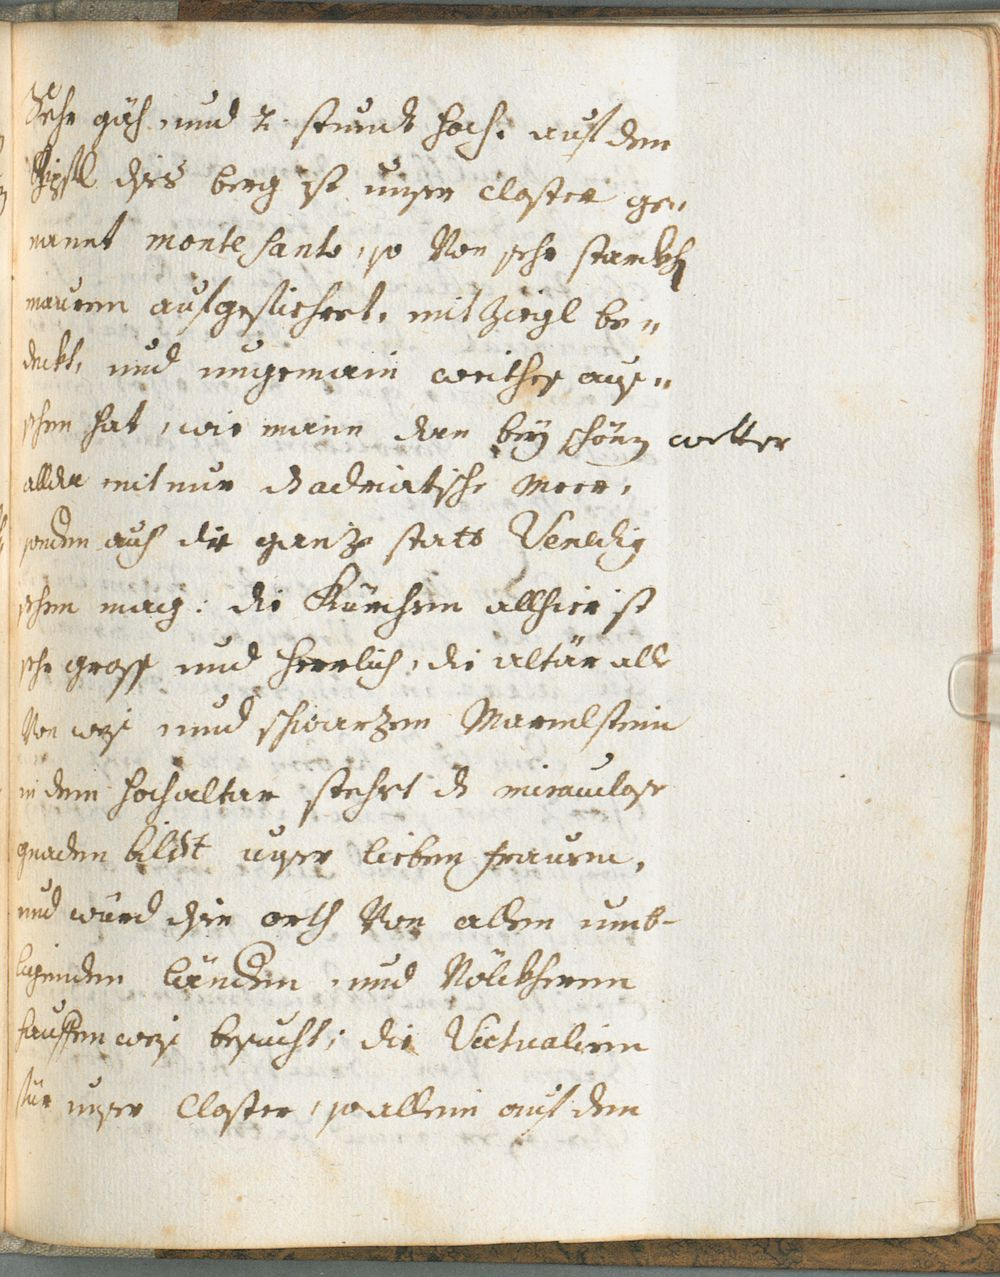 Sehr gäh, und 2. stundt hoch. auf dem
Gipfl dises berg ist unser Closter ge„
nannt monte Santo, so Von sehr starckh
mauren aufgefiehrt, mit Ziegl be„
deckt, und ungemain weithes aus„
sehen hat, wie mann dan bey schönen wetter
allda nit nur das adriatische Meer,
sondern auch die ganze statt Venedig
sehen mag: die Kürchen allhier ist
sehr gross und Herrlich, die altär alle
Von weis und schwarzen Marmelstein
in dem hochaltar stehet das miraculose
gnaden bildt unser lieben frauen,
und würd diser orth Von allen umb-
ligenden ländern, und Völckheren
hauffenweis besucht; die Victualien
für unser Closter, so allein auf dem